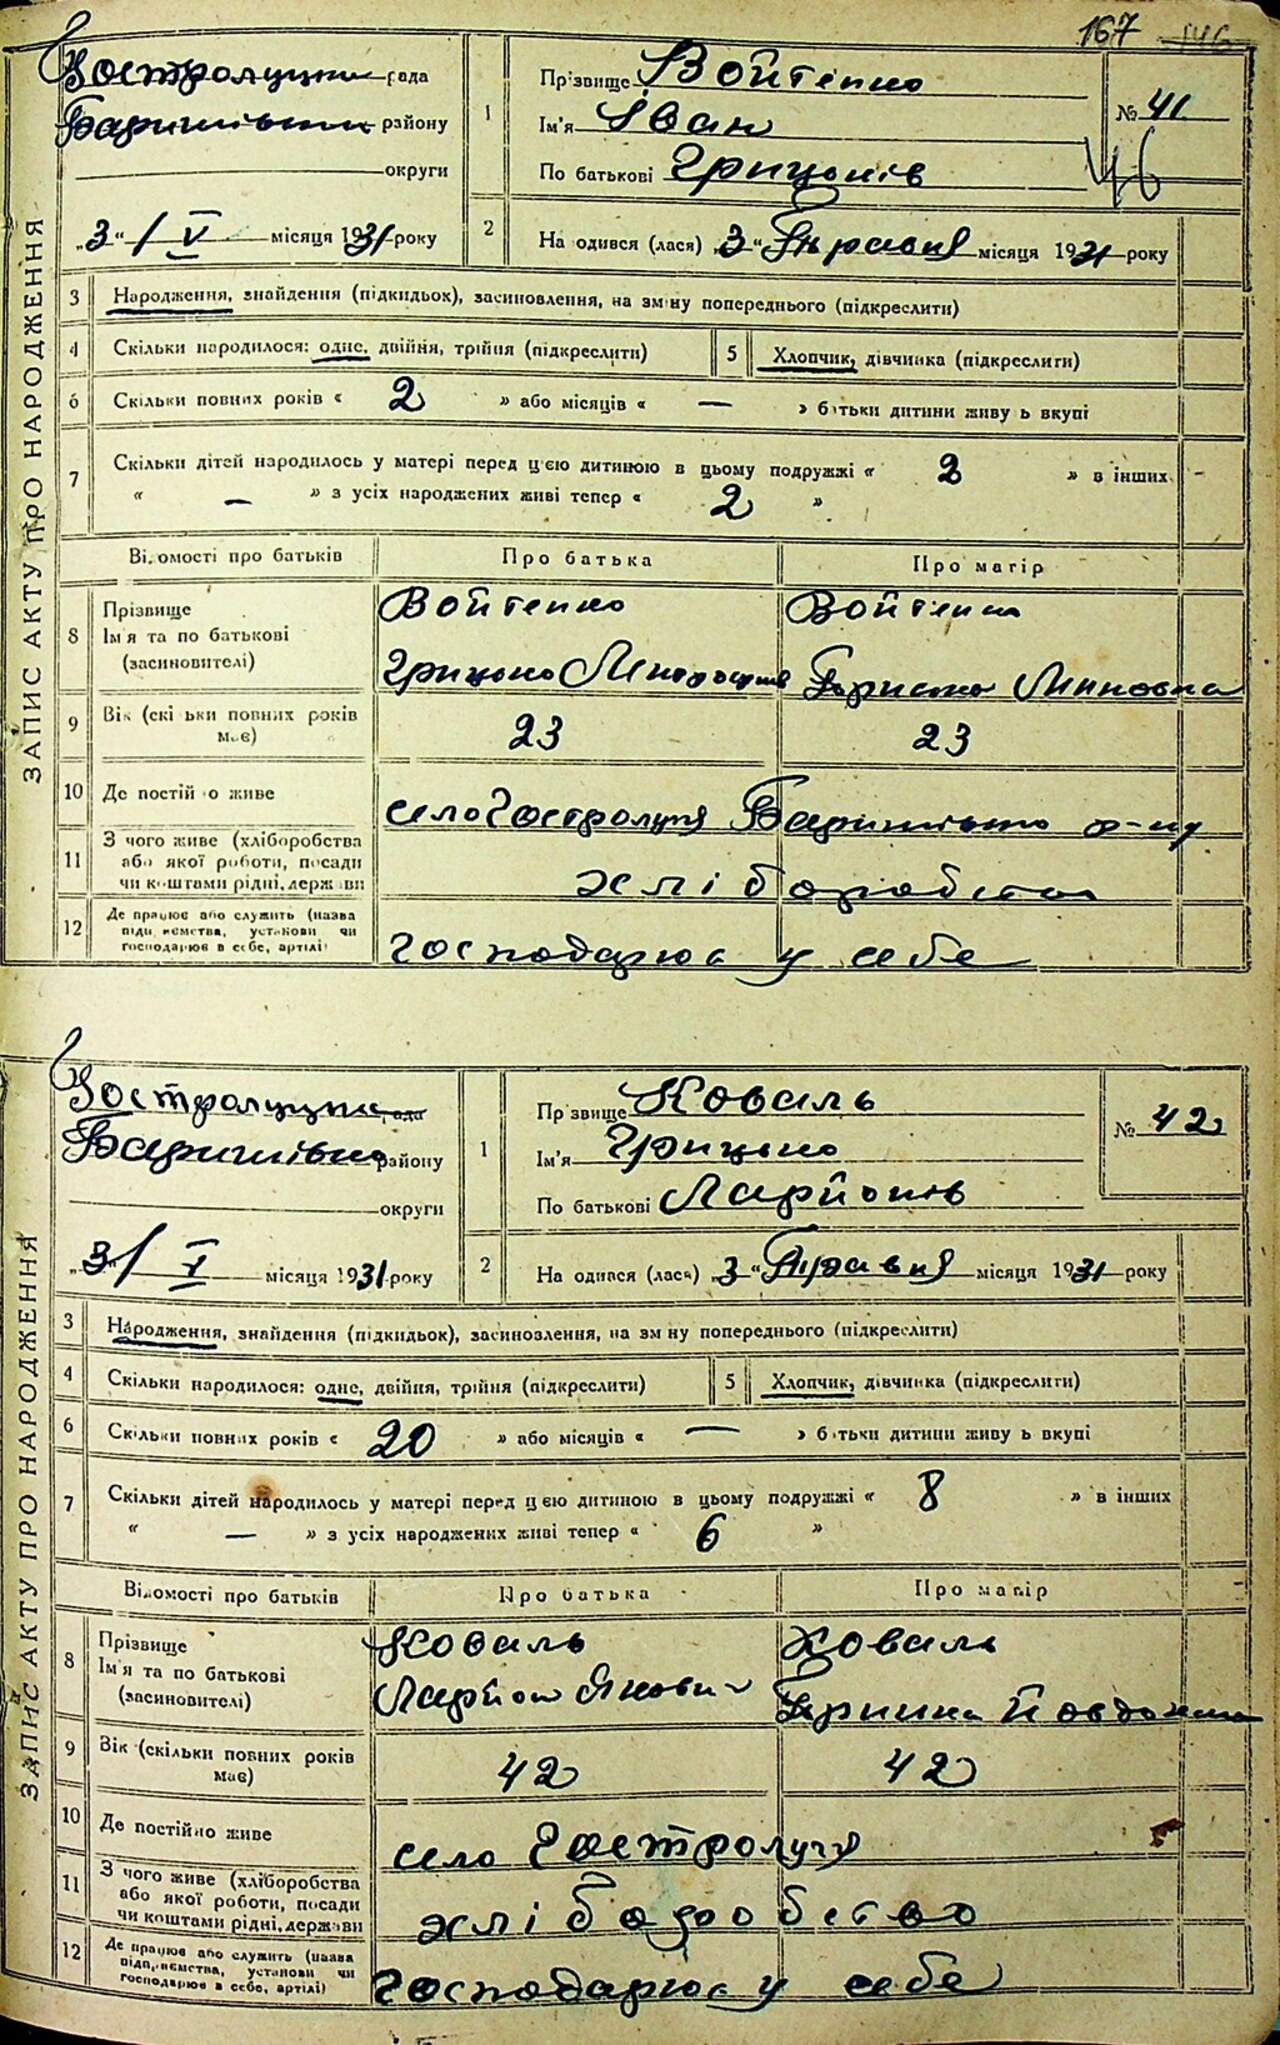 167 146
ЗАПИС АКТУ ПРО НАРОДЖЕННЯ
Гостролуцька рада
Баришівськ району
округи
„3“ / V місяця 1931 року
1
Прізвище Войтенко
Ім'я Іван
По батькові Грицьків
№ 41
46
2
На одився (лася) „3“ Травня місяця 1931 року
3 Народження, знайдення (підкидьок), засиновлення, на зміну попереднього (підкреслити)
4 Скільки народилося: одне, двійня, трійня (підкреслити) 5 Хлопчик, дівчинка (підкреслити)
6 Скільки повних років « 2 » або місяців « — » батьки дитини живу ь вкупі
7 Скільки дітей народилось у матері перед цією дитиною в цьому подружжі « 2 » в інших
« — » з усіх народжених живі тепер « 2 »
Відомості про батьків Про батька Про матір
8 Прізвище
Ім'я та по батькові
(засиновителі)
Войтенко Войтенко
Грицько
23 23
9 Вік (скільки повних років
має)
10 Де постійно живе
село Гостролуччя Баришівсько р-ну
11 З чого живе (хліборобства
або якої роботи, посади
чи коштами рідні, держави
хліборобство
12 Де працює або служить (назва
підприємства, установи чи
господарює в себе, артілі)
господарює у себе
ЗАПИС АКТУ ПРО НАРОДЖЕННЯ
Гостролуцька рада
Баришівсько району
округи
„3“ / V місяця 1931 року
1
Прізвище Коваль
Ім'я Грицько
По батькові Ларйонів
№ 42
2
На одився (лася) „3“ Травня місяця 1931 року
3 Народження, знайдення (підкидьок), засиновлення, на зміну попереднього (підкреслити)
4 Скільки народилося: одне, двійня, трійня (підкреслити) 5 Хлопчик, дівчинка (підкреслити)
6 Скільки повних років « 20 » або місяців « — » батьки дитини живу ь вкупі
7 Скільки дітей народилось у матері перед цією дитиною в цьому подружжі « 8 » в інших
« — » з усіх народжених живі тепер « 6 »
Відомості про батьків Про батька Про матір
8 Прізвище
Ім'я та по батькові
(засиновителі)
Коваль Коваль
Ларйон Якович
9 Вік (скільки повних років
має)
42 42
10 Де постійно живе
село Гостролуччя
11 З чого живе (хліборобства
або якої роботи, посади
чи коштами рідні, держави
хліборобство
12 Де працює або служить (назва
підприємства, установи чи
господарює в себе, артілі)
господарює у себе